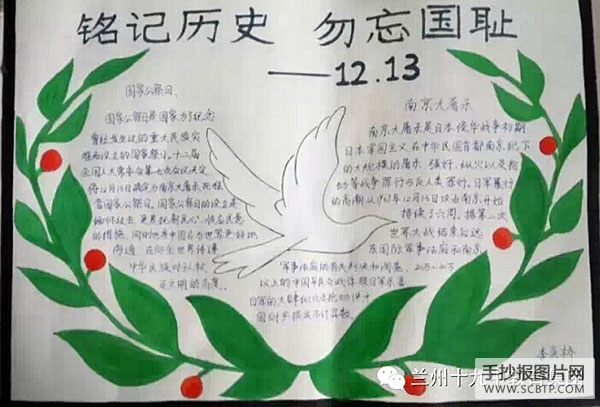 铭记历史 勿忘国耻
——12.13
国家公祭日
国家公祭日是国家为了纪念
曾经发生过的重大民族灾
难而设立的国家祭日。十二届
全国人大常委会第七次会议决定
将12月13日确定为南京大屠杀死难
者国家公祭日。国家公祭日的设立是
的措施，同时也是中国为世界更好地
沟通
中华民族对人权、
南京大屠杀
南京大屠杀是日本侵华战争初期
日本军国主义在中华民国首都南京犯下
的大规模的屠杀、强奸、纵火以及抢
劫等战争罪行与反人类罪行。日军暴行
的高潮从1937年12月13日攻占南京开始
持续了六周。据第二次
世界大战结束后远
东国际军事法庭和南京
军事法庭的有关判决和调查
20万~30万
以上的中国平民
日军的大肆纵火及抢劫
兰州十九
手抄报图片网
WWW.SCBTP.COM